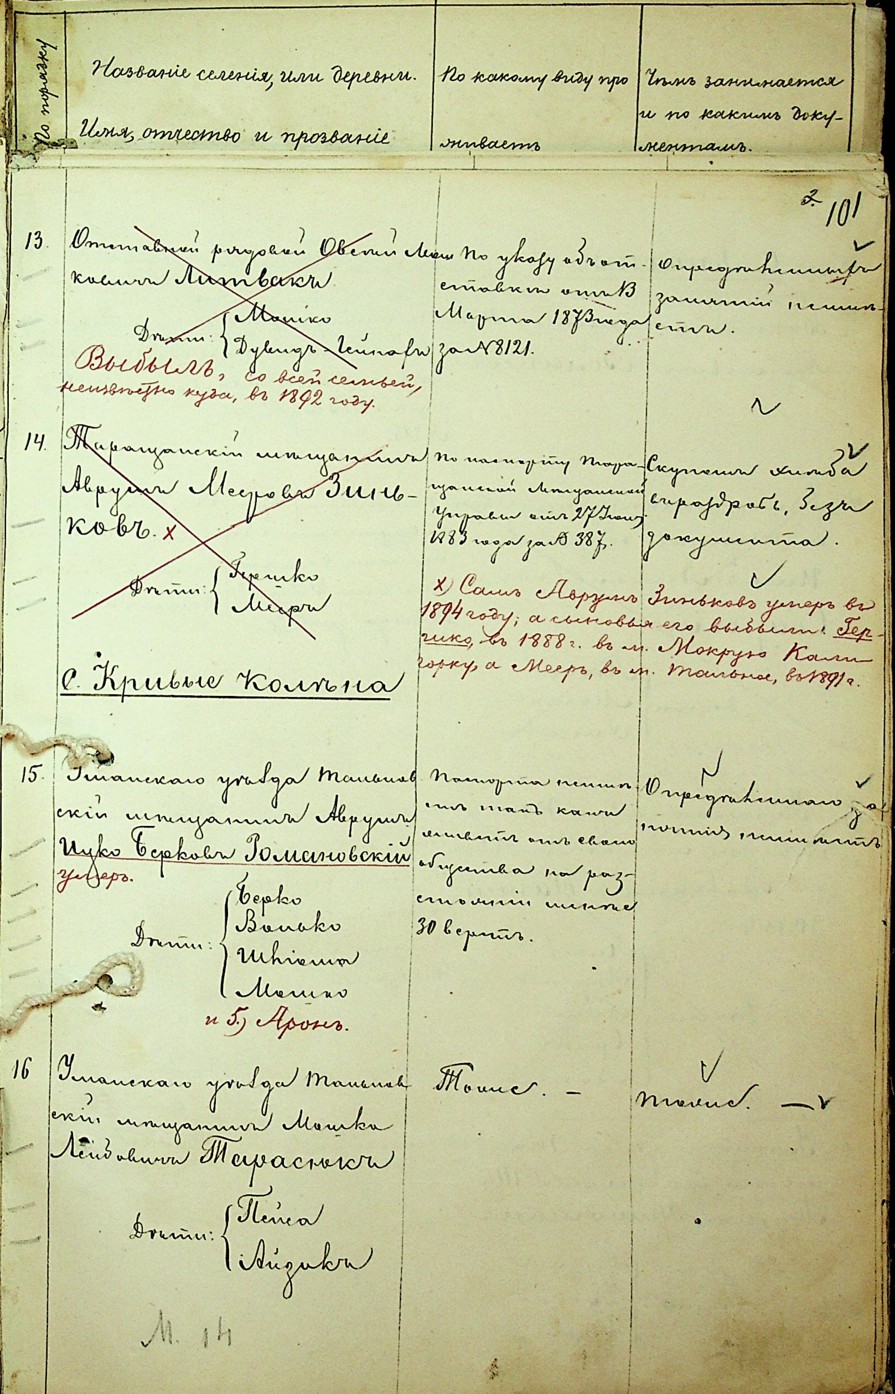 № по порядку
Названіе селенія, или деревни.
Имя, отчество и прозваніе
По какому виду про
живаетъ
Чѣмъ занимается
и по какимъ доку-
ментамъ.
2.
101
13.
Отставной рядовой Овсѣй Мош
ковичъ Литвакъ
Дѣти:
Мошко
Дувидъ-
Выбылъ, со всей семьей,
неизвѣстно куда, въ 1892 году.
По указу объ от-
ставкѣ отъ 13
Марта 1873 года
за № 8121.
Опредѣленныхъ
занятій неимѣ-
етъ.
14.
Таращанскій мѣщанинъ
Аврумъ Мееровъ Зинь-
ковъ. х
Дѣти:
Гершко
Мееръ
По паспорту Тара-
щанской Мѣщанской
Управы отъ 27 
1883 года за № 387.
Скупаетъ хлѣба
въ раздробь, безъ
документа.
х) Самъ Аврумъ Зиньковъ умеръ въ
1894 году; а сыновья его выбыли: Гер-
шко, въ 1888 г. въ м. Мокрую Кали
горку, а Мееръ, въ м. Тальное, въ 1891 г.
С. Кривые Колѣна
15.
Уманскаго уѣзда Тальнов
скій мѣщанинъ Аврумъ
Ицко Берковъ Романовскій
умеръ.
Дѣти:
Берко
Волько
Шліома
Мошко
и 5.) Аронъ.
Паспорта неимѣ-
етъ такъ какъ
живетъ отъ своего
общества на раз-
стояніи менѣе
30 верстъ.
Опредѣленнаго за
нятія неимѣетъ
16
Уманскаго уѣзда Тальнов
скій мѣщанинъ Мошко
Лейбовичъ Тарасюкъ
Дѣти:
Пейса
Айзикъ
Тоже. –
Тоже. –
М. 14